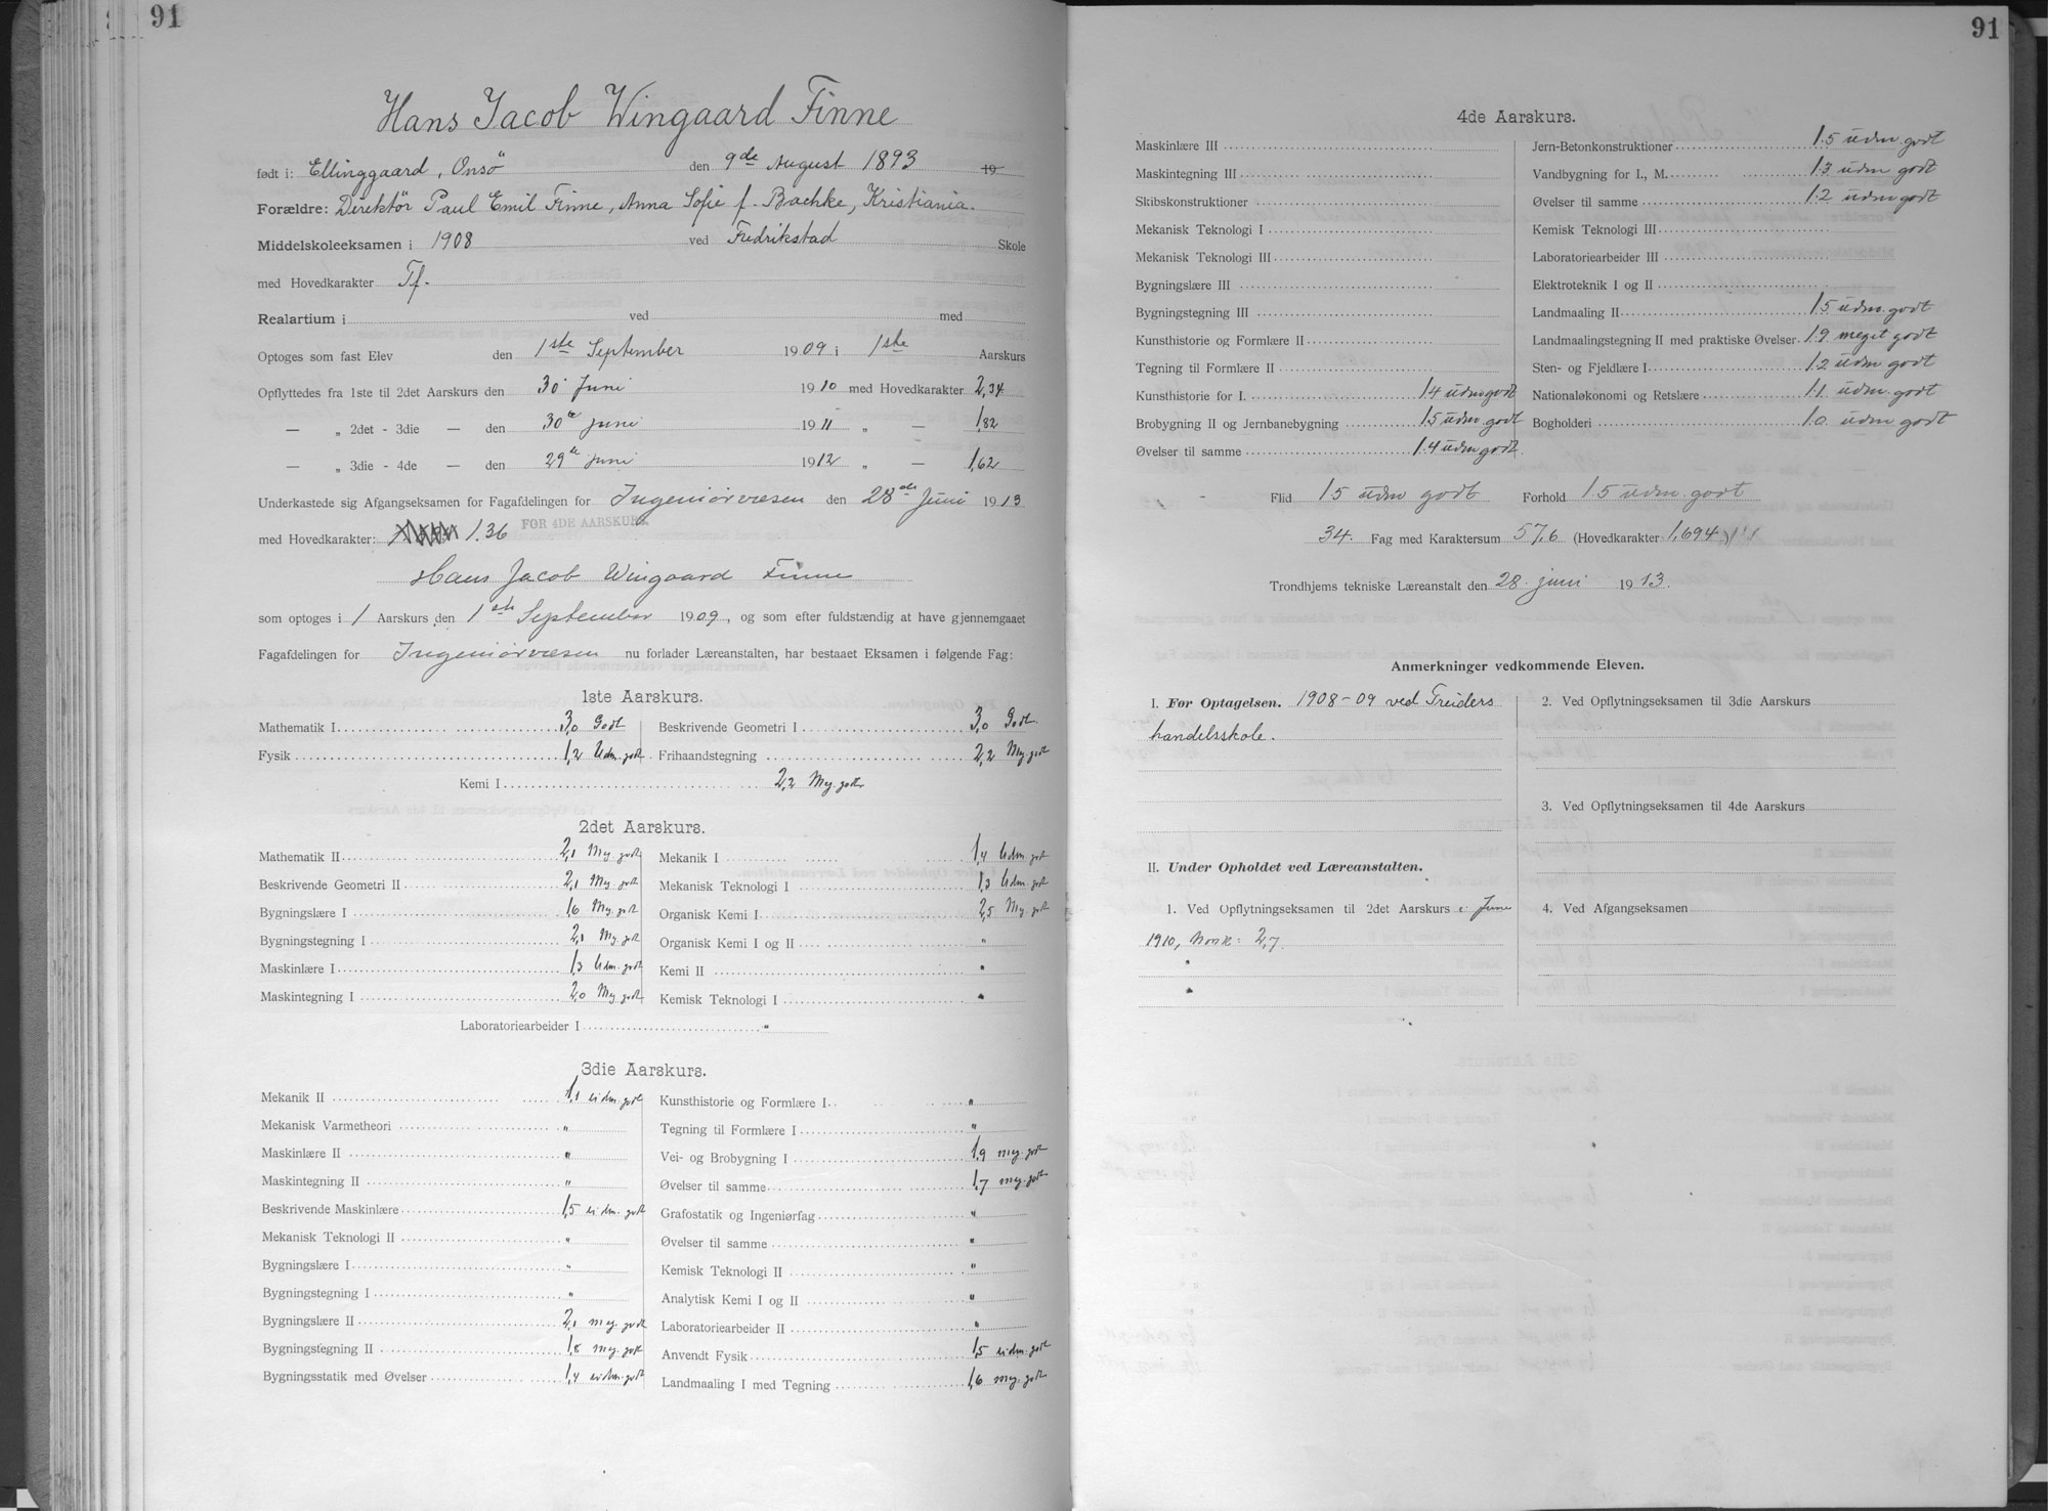 91
Hans Jacob Wingaard Finne
født i: Ellinggaard, Onsö den 9de August 1893 19
Forældre: Direktör Paul Emil Finne, Anna Sofie f. Bachke, Kristiania.
Middelskoleeksamen i 1908 ved Fredrikstad Skole
med Hovedkarakter Tf.
Realartium i ved med
Optoges som fast Elev den 1ste September 1909 i 1ste Aarskurs
Opflyttedes fra 1ste til 2det Aarskurs den 30 Juni 1910 med Hovedkarakter 2,34
— „ 2det - 3die — den 30te juni 1911 „ — 1,82
— „ 3die - 4de — den 29de juni 1912 „ — 1,62
Underkastede sig Afgangseksamen for Fagafdelingen for Ingeniörvæsen den 28de Juni 1913
med Hovedkarakter: 1.36 FOR 4DE AARSKURS
Hans Jacob Wingaard Finne
som optoges i 1 Aarskurs den 1ste September 1909, og som efter fuldstændig at have gjennemgaaet
Fagafdelingen for Ingeniörvæsen nu forlader Læreanstalten, har bestaaet Eksamen i følgende Fag:
1ste Aarskurs.
Mathematik I 3,0 Godt
Fysik 1,2 Udm. godt
Beskrivende Geometri I 3,0 Godt.
Frihaandstegning 2,2 Meg. godt
Kemi I 2,2 Meg. godt
2det Aarskurs.
Mathematik II 2,1 Meg. godt
Beskrivende Geometri II 2,1 Meg. godt
Bygningslære I 1,6 Meg. godt
Bygningstegning I 2,1 Meg. godt
Maskinlære I 1,3 Udm. godt
Maskintegning I 2,0 Meg. godt
Mekanik I 1,4 Udm. godt
Mekanisk Teknologi I 1,3 Udm. godt
Organisk Kemi I 2,5 Meg. godt
Organisk Kemi I og II "
Kemi II "
Kemisk Teknologi I "
Laboratoriearbeider I "
3die Aarskurs.
Mekanik II 1,1 udm. godt
Mekanisk Varmetheori "
Maskinlære II "
Maskintegning II "
Beskrivende Maskinlære 1,5 udm. godt
Mekanisk Teknologi II "
Bygningslære I "
Bygningstegning I "
Bygningslære II 2,1 meg. godt
Bygningstegning II 1,8 meg. godt
Bygningsstatik med Øvelser 1,4 udm. godt
Kunsthistorie og Formlære I "
Tegning til Formlære I "
Vei- og Brobygning I 1,9 meg. godt
Øvelser til samme 1,7 meg. godt
Grafostatik og Ingeniørfag "
Øvelser til samme "
Kemisk Teknologi II "
Analytisk Kemi I og II "
Laboratoriearbeider II "
Anvendt Fysik 1,5 udm. godt
Landmaaling I med Tegning 1,6 meg. godt
91
4de Aarskurs.
Maskinlære III
Maskintegning III
Skibskonstruktioner
Mekanisk Teknologi I
Mekanisk Teknologi III
Bygningslære III
Bygningstegning III
Kunsthistorie og Formlære II
Tegning til Formlære II
Kunsthistorie for I. 1.4 udm godt
Brobygning II og Jernbanebygning 1.5 udm. godt
Øvelser til samme 1.4 udm godt.
Jern-Betonkonstruktioner 1.5 udm. godt
Vandbygning for I., M. 1.3 udm godt
Øvelser til samme 1.2 udm godt
Kemisk Teknologi III
Laboratoriearbeider III
Elektroteknik I og II
Landmaaling II 1.5 udm. godt
Landmaalingstegning II med praktiske Øvelser 1.9 meget godt
Sten- og Fjeldlære I 1.2 udm. godt
Nationaløkonomi og Retslære 1.1. udm. godt
Bogholderi 1.0. udm godt
Flid 1.5 udm godt Forhold 1.5 udm. godt
34. Fag med Karaktersum 57,6 (Hovedkarakter 1,694)
Trondhjems tekniske Læreanstalt den 28. juni 1913.
Anmerkninger vedkommende Eleven.
I. Før Optagelsen. 1908-09 ved Treiders
handelsskole.
II. Under Opholdet ved Læreanstalten.
1. Ved Opflytningseksamen til 2det Aarskurs i Juni
1910, Norsk: 2,7.
"
"
2. Ved Opflytningseksamen til 3die Aarskurs
3. Ved Opflytningseksamen til 4de Aarskurs
4. Ved Afgangseksamen